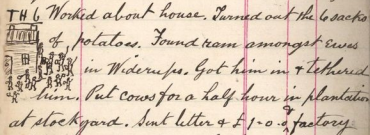 TH 6 Worked about house. Turned out the 6 sacks
of potatoes. Found ram amongst Ewes
in Widerups. Got him in & tethered
him. Put cows for a half hour in plantation
at stock yard. Sent letter & £1-0-0 factory